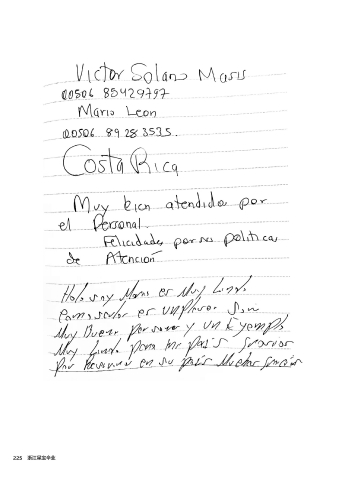 Victor Solano Masis
00506 85429797
Mario Leon
00506 89283535.
Costa Rica
Muy bien atendido por
el Personal.
Felicidades por sus politicas
de Atención
Hola soy Mario es Muy Lindo
es un placer Son
Muy Buena Persona y un Ejemplo
Muy Lindo para mi país Gracias
Por en su país Muchas gracias
225 浙江星宝伞业